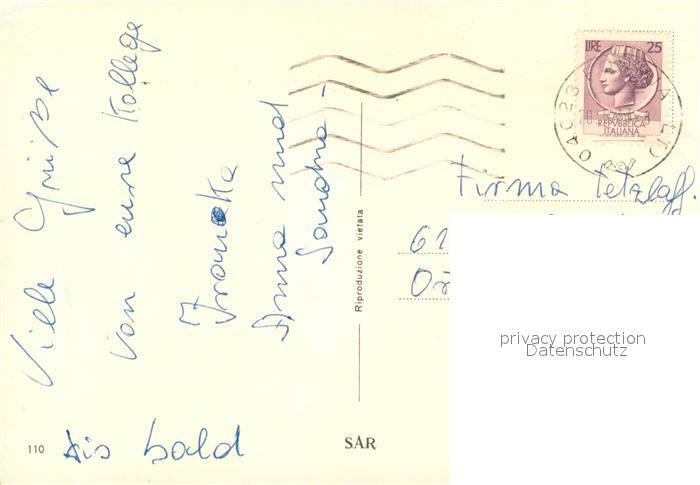 Ville Grüse
von eure Kollege
Franeka
Anna und
Sandra -
bis bald
110
SAR
Riproduzione vietata
LIRE 25
REPVBBLICA
ITALIANA
04023
Firma Tetzlaff.
61
Or
privacy protection
Datenschutz